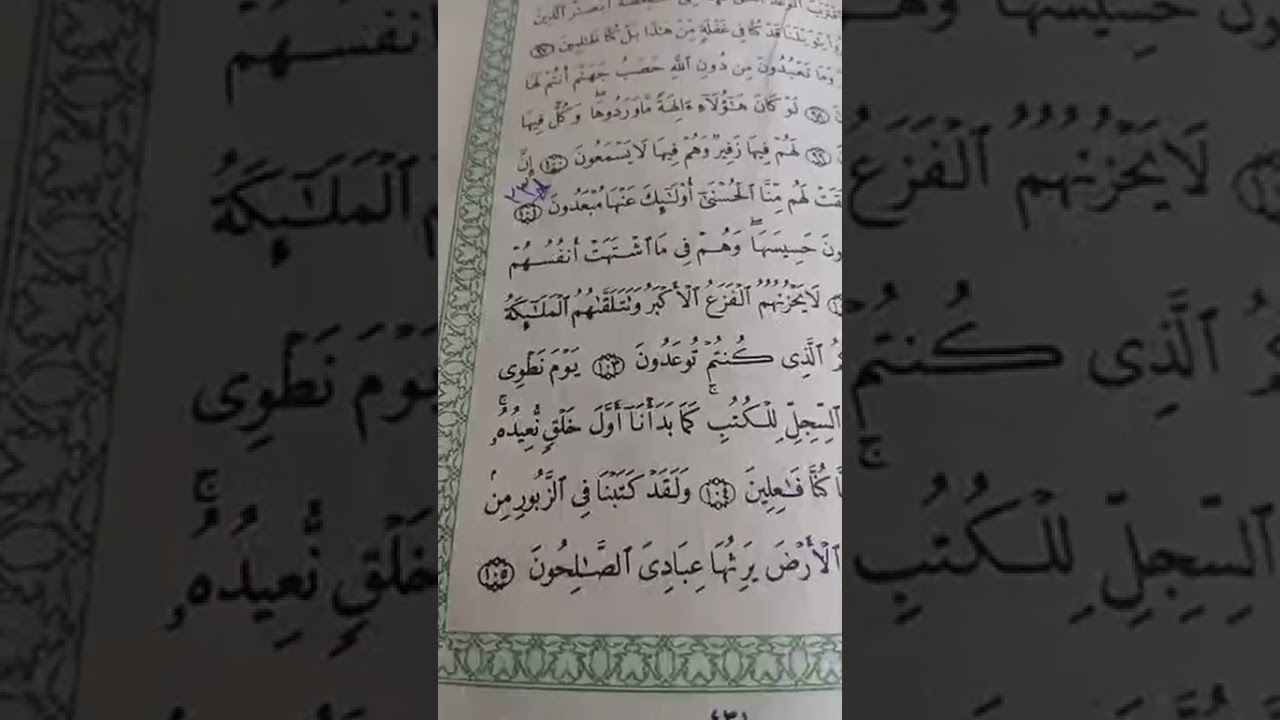 ٱقْتَرَبَ ٱلْوَعْدُ ٱلْحَقُّ أَبْصَٰرُ ٱلَّذِينَ
يَٰوَيْلَنَا قَدْ كُنَّا فِى غَفْلَةٍ مِّنْ هَٰذَا بَلْ كُنَّا ظَٰلِمِينَ ٩٧
وَمَا تَعْبُدُونَ مِن دُونِ ٱللَّهِ حَصَبُ جَهَنَّمَ أَنتُمْ لَهَا
٩٨ لَوْ كَانَ هَٰٓؤُلَآءِ ءَالِهَةً مَّا وَرَدُوهَا ۖ وَكُلٌّ فِيهَا
٩٩ لَهُمْ فِيهَا زَفِيرٌ وَهُمْ فِيهَا لَا يَسْمَعُونَ ١٠٠ إِنَّ
قَتْ لَهُم مِّنَّا ٱلْحُسْنَىٰٓ أُو۟لَٰٓئِكَ عَنْهَا مُبْعَدُونَ ١٠١
ونَ حَسِيسَهَا ۖ وَهُمْ فِى مَا ٱشْتَهَتْ أَنفُسُهُمْ
لَا يَحْزُنُهُمُ ٱلْفَزَعُ ٱلْأَكْبَرُ وَتَتَلَقَّىٰهُمُ ٱلْمَلَٰٓئِكَةُ
كُمُ ٱلَّذِى كُنتُمْ تُوعَدُونَ ١٠٣ يَوْمَ نَطْوِى
ٱلسِّجِلِّ لِلْكُتُبِ ۚ كَمَا بَدَأْنَآ أَوَّلَ خَلْقٍ نُّعِيدُهُۥ ۚ
ا كُنَّا فَٰعِلِينَ ١٠٤ وَلَقَدْ كَتَبْنَا فِى ٱلزَّبُورِ مِنۢ
ٱلْأَرْضَ يَرِثُهَا عِبَادِىَ ٱلصَّٰلِحُونَ ١٠٥